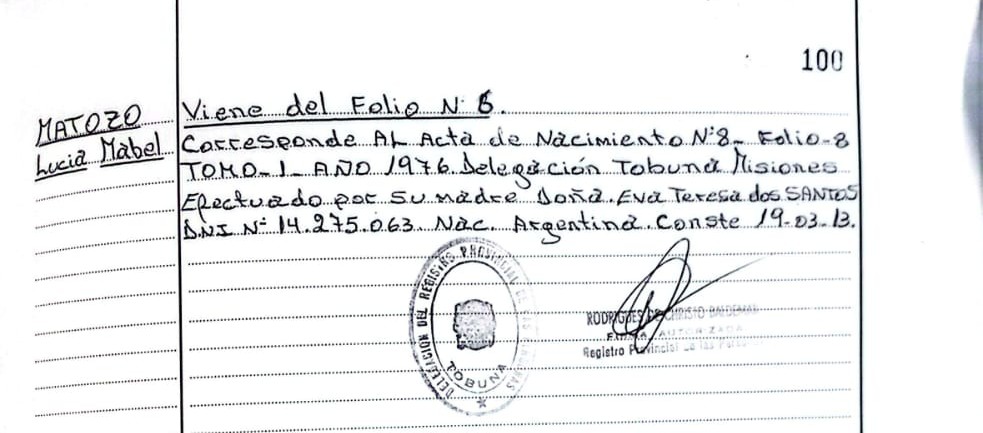 100
MATOZO
Lucia Mabel
Viene del Folio Nº 8.
Corresponde AL Acta de Nacimiento Nº8- Folio-8
TOMO-1- AÑO 1976. Delegación Tobuna Misiones
Efectuado por su madre Doña. Eva Teresa dos SANTOS
D.N.I Nº 14.275.063 Nac. Argentina. Conste 19-03-13.
DELEGACION DEL REGISTRO PROVINCIAL DE LAS PERSONAS
TOBUNA
RODRIGUES DE CHRISTO BALDEMAR
FIRMA AUTORIZADA
Registro Provincial de las